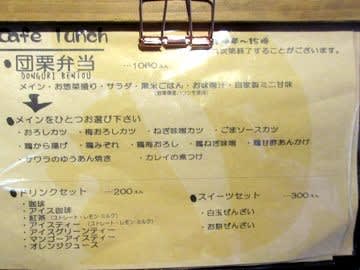 cafe lunch
次第終了することがございます。
●団栗弁当 1080
DONGURI BENTOU
メイン・お惣菜盛り・サラダ・黒米ごはん・お味噌汁・自家製ミニ甘味
●メインをひとつお選び下さい
・おろしカツ ・梅おろしカツ ・ねぎ味噌カツ ・ごまソースカツ
・鶏から揚げ ・鶏みぞれ ・鶏梅おろし ・鶏ねぎ味噌 ・鶏甘酢あんかけ
・サワラのゆうあん焼き ・カレイの煮つけ
●ドリンクセット 200
●スイーツセット 300
・珈琲
・アイス珈琲
・紅茶（ストレート・レモン・ミルク）
・アイスティー（ストレート・レモン・ミルク）
・アイスグリーンティー
・マンゴーアイスティー
・オレンジジュース
・白玉ぜんざい
・お餅ぜんざい